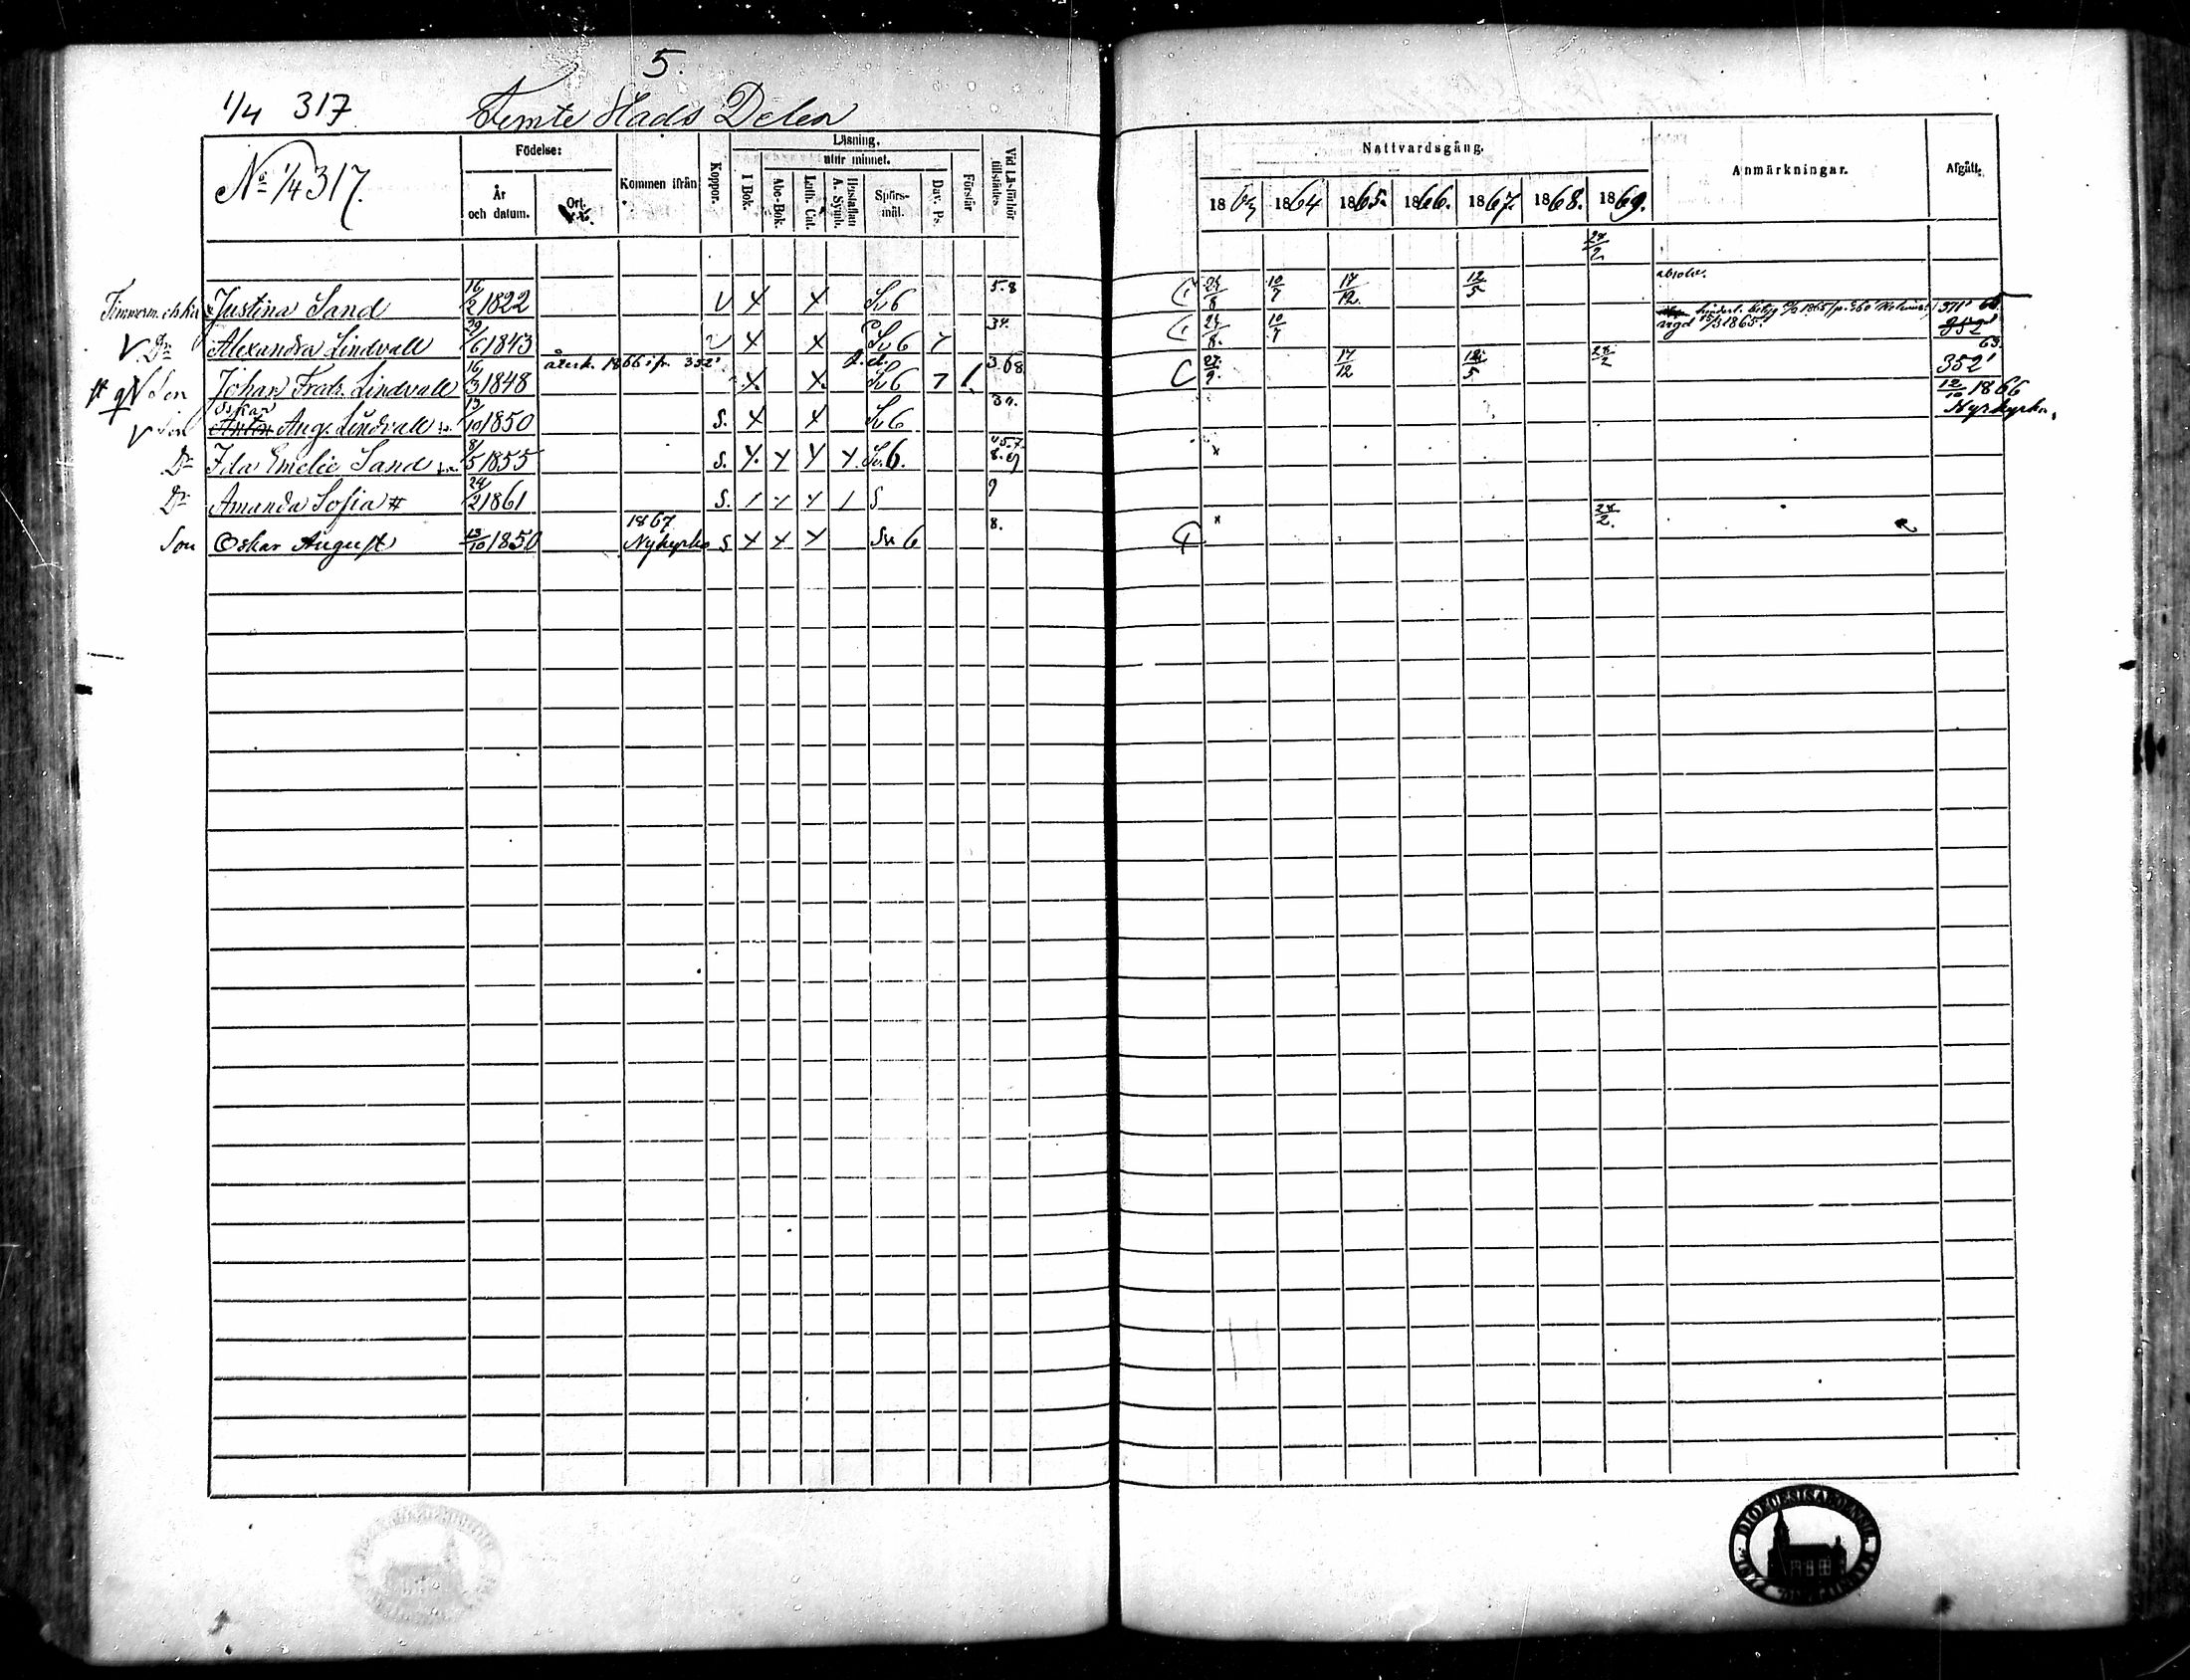 5.
1/4 317 Femte Stads Delen
No 1/4 317.
Födelse:
År och datum.
Ort.
Kommen ifrån
Koppor.
Läsning.
utur minnet.
I Bok.
Abc-Bok.
Luth. Cat.
Hustaflan A. Symb.
Spörs-mål.
Dav. Ps.
Förstår
Vid Läsförhör tillstädes.
Nattvardsgång.
1863 1864 1865. 1866. 1867. 1868. 1869.
Anmärkningar.
Afgått.
27/2
absolv.
Justina Sand 16/2 1822 v x x Sv 6 58 10/7 17/12 12/5
1865
371' 65
Dr Alexandra Lindvall 29/6 1843 x x Sv 6 7 34. 10/7 1865.
352'
återk. 1866 ifr. 352'
V Son Johan Fredr. Lindvall 16/3 1848 x x Sv 6 7 3.68 C 17/12 12/5 28/2 352'
63
12/10 1866
Nykyrka.
V Son Anton Oskar Aug. Lindvall 13/10 1850 S. x x Sv 6 34.
Dr Ida Emelie Sand 8/5 1855 S. Sv. 6. 4.5.7. 8.9 x
Dr Amanda Sofia 24/2 1861 S. S 9
1867
Son Oskar August 13/10 1850 Nykyrko S x x x Sv 6 8. x 28/2.